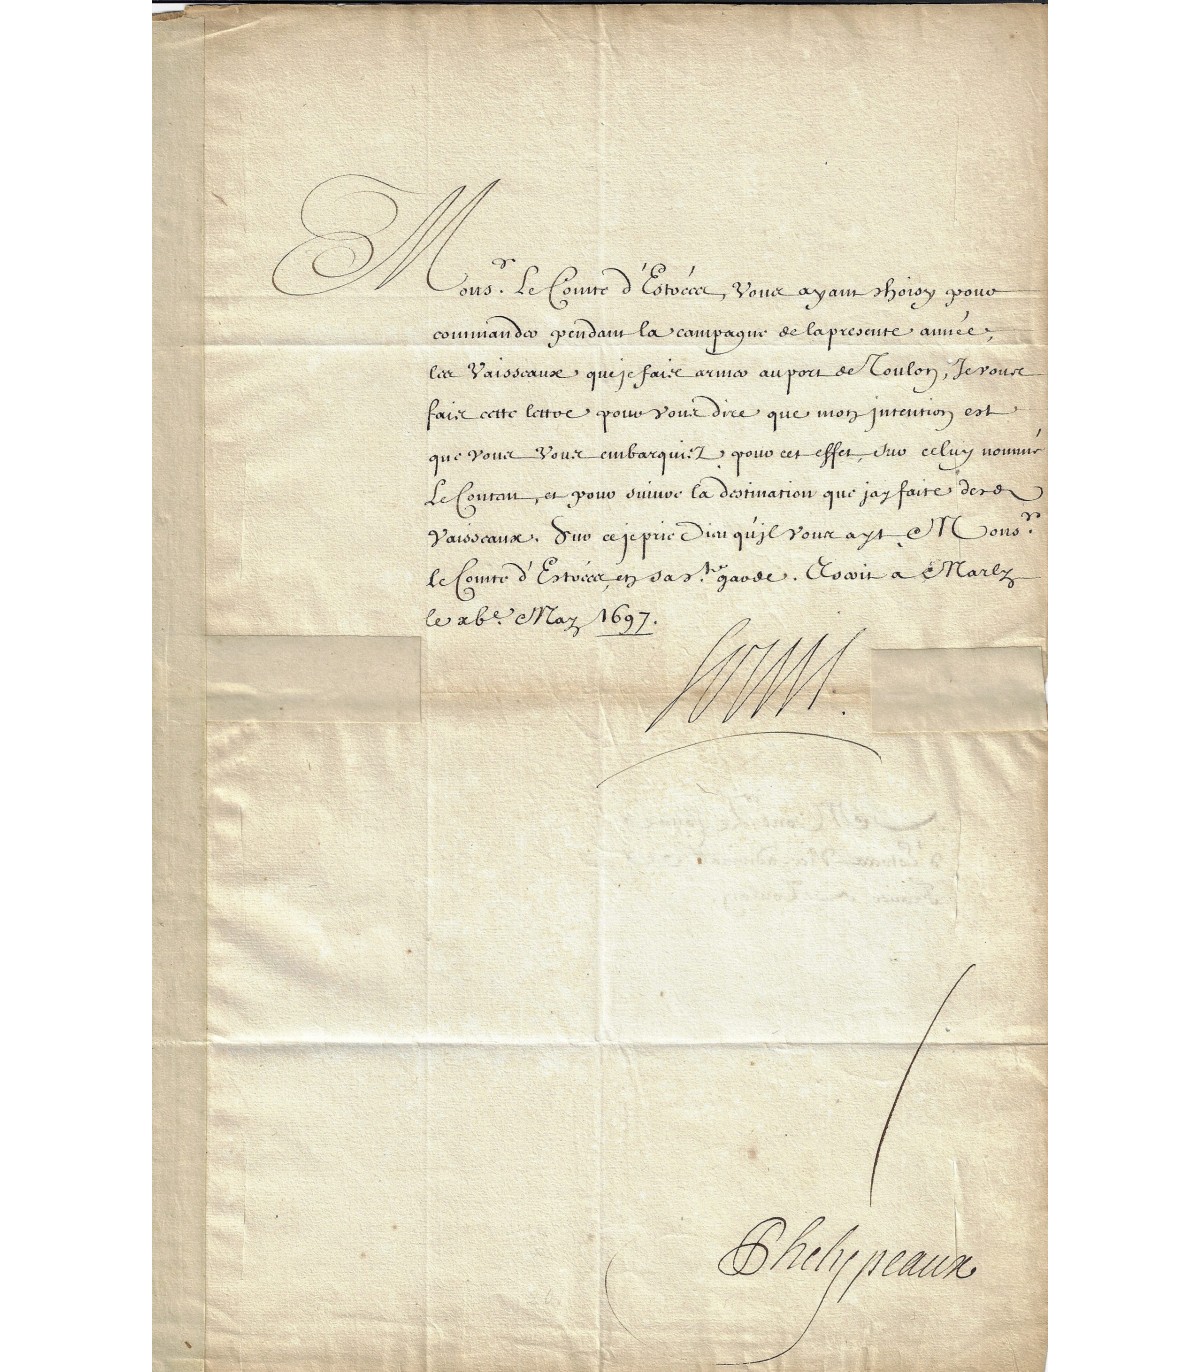 Mons.r Le Comte d'Estrées, Vous ayant choisy pour
commander pendant la campagne de la presente année,
les Vaisseaux que je fais armer au port de Toulon, Je vous
fais cette lettre pour vous dire que mon intention est
que vous vous embarquiez pour cet effet, sur celuy nommé
Le Content, et pour suivre la destination que j'ay faite desd.
Vaisseaux. Sur ce je prie Dieu qu'il vous ayt Mons.r
le Comte d'Estrées, en sa s.te garde. Escrit a Marly
le xbe. May 1697.
Louis
Phelypeaux